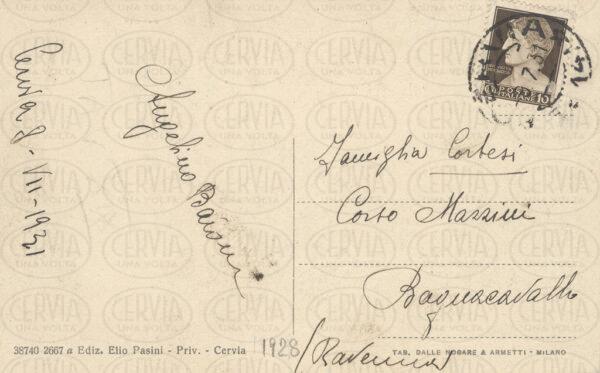 Cervia 8-VII-1931
Angelino Baroni
Famiglia Cortesi
Corso Mazzini
Bagnacavallo
(Ravenna)
POSTE
ITALIANE 10
MILANO
7.31
38740 2667 a Ediz. Elio Pasini - Priv. - Cervia
1928
TAB. DALLE NOGARE & ARMETTI - MILANO
CERVIA
UNA VOLTA